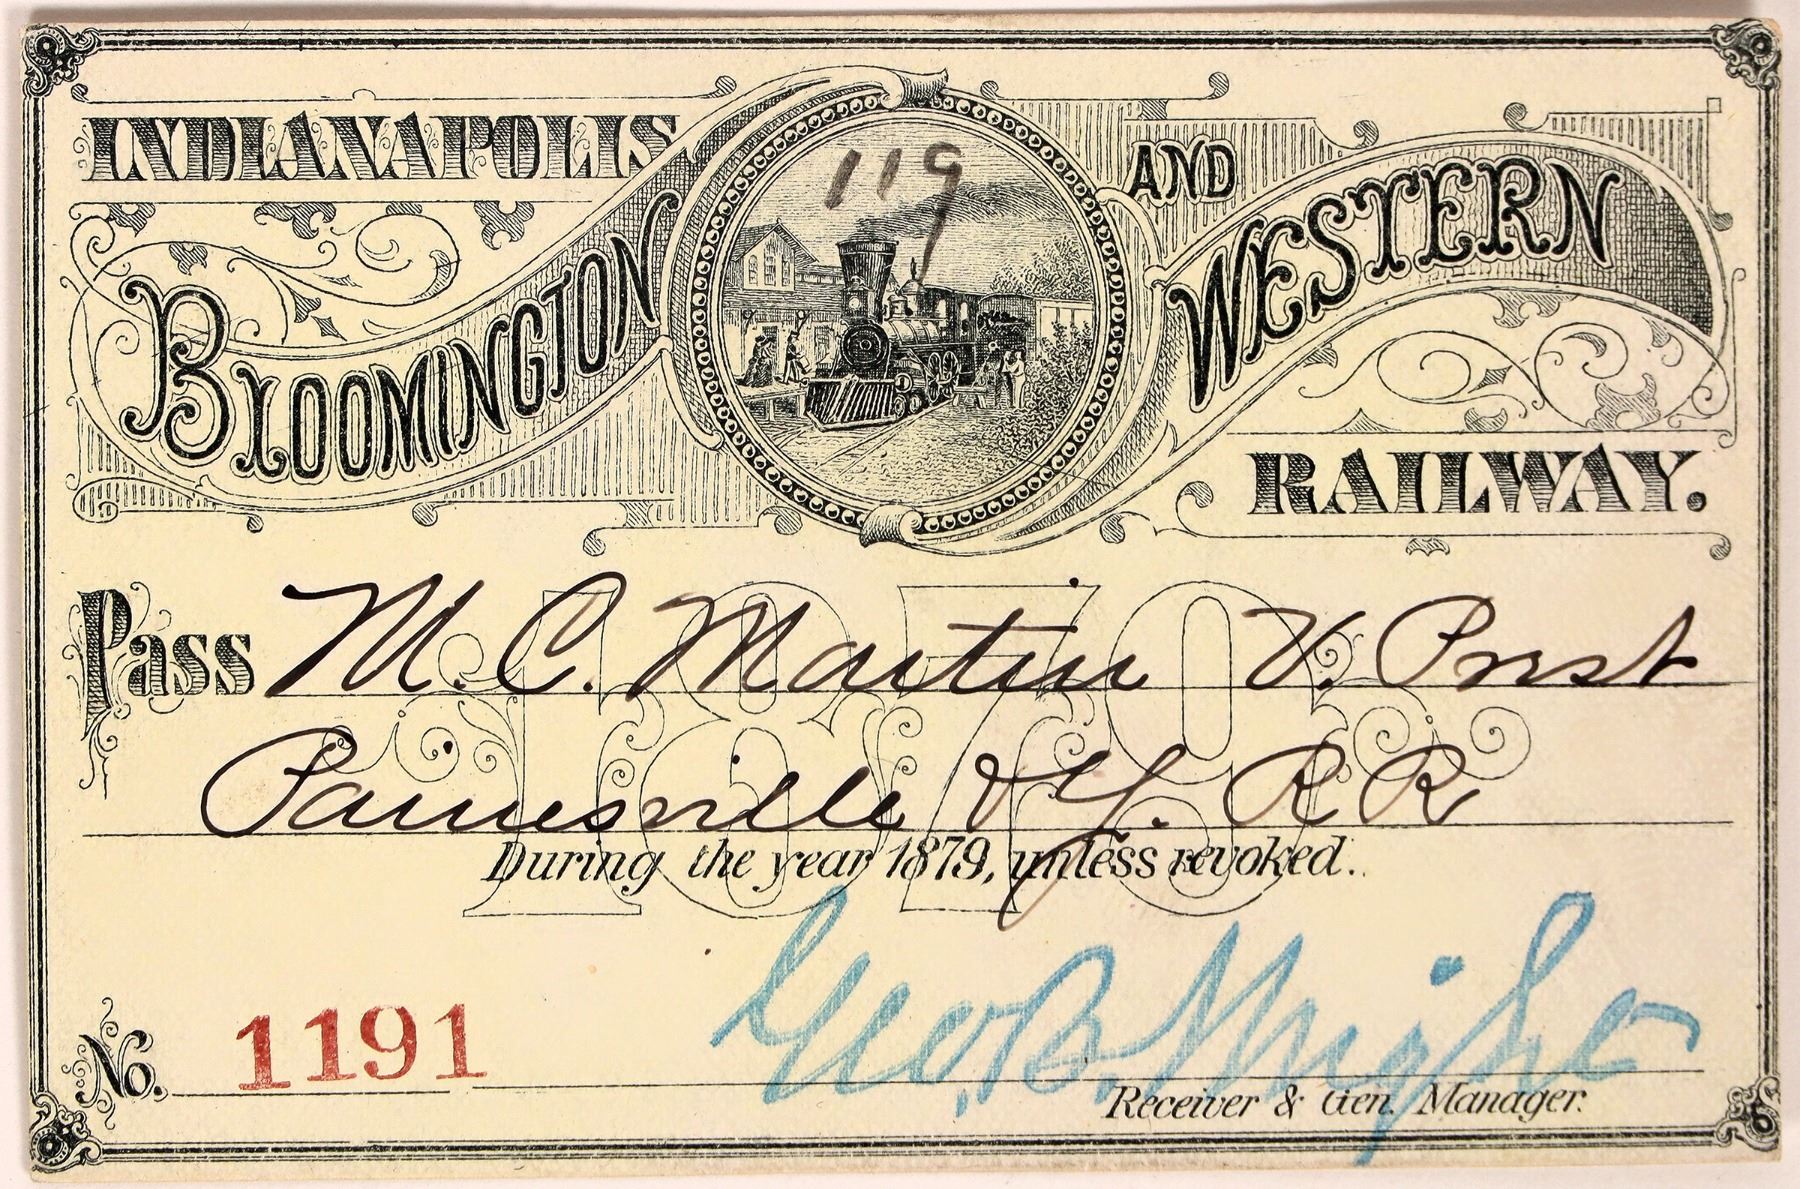 INDIANAPOLIS
BLOOMINGTON
AND
WESTERN
RAILWAY.
119
1879
Pass M. C. Martin V. Prest
Painesville & Y. R R
During the year 1879, unless revoked.
No. 1191
Geo. B. Wright
Receiver & Gen. Manager.